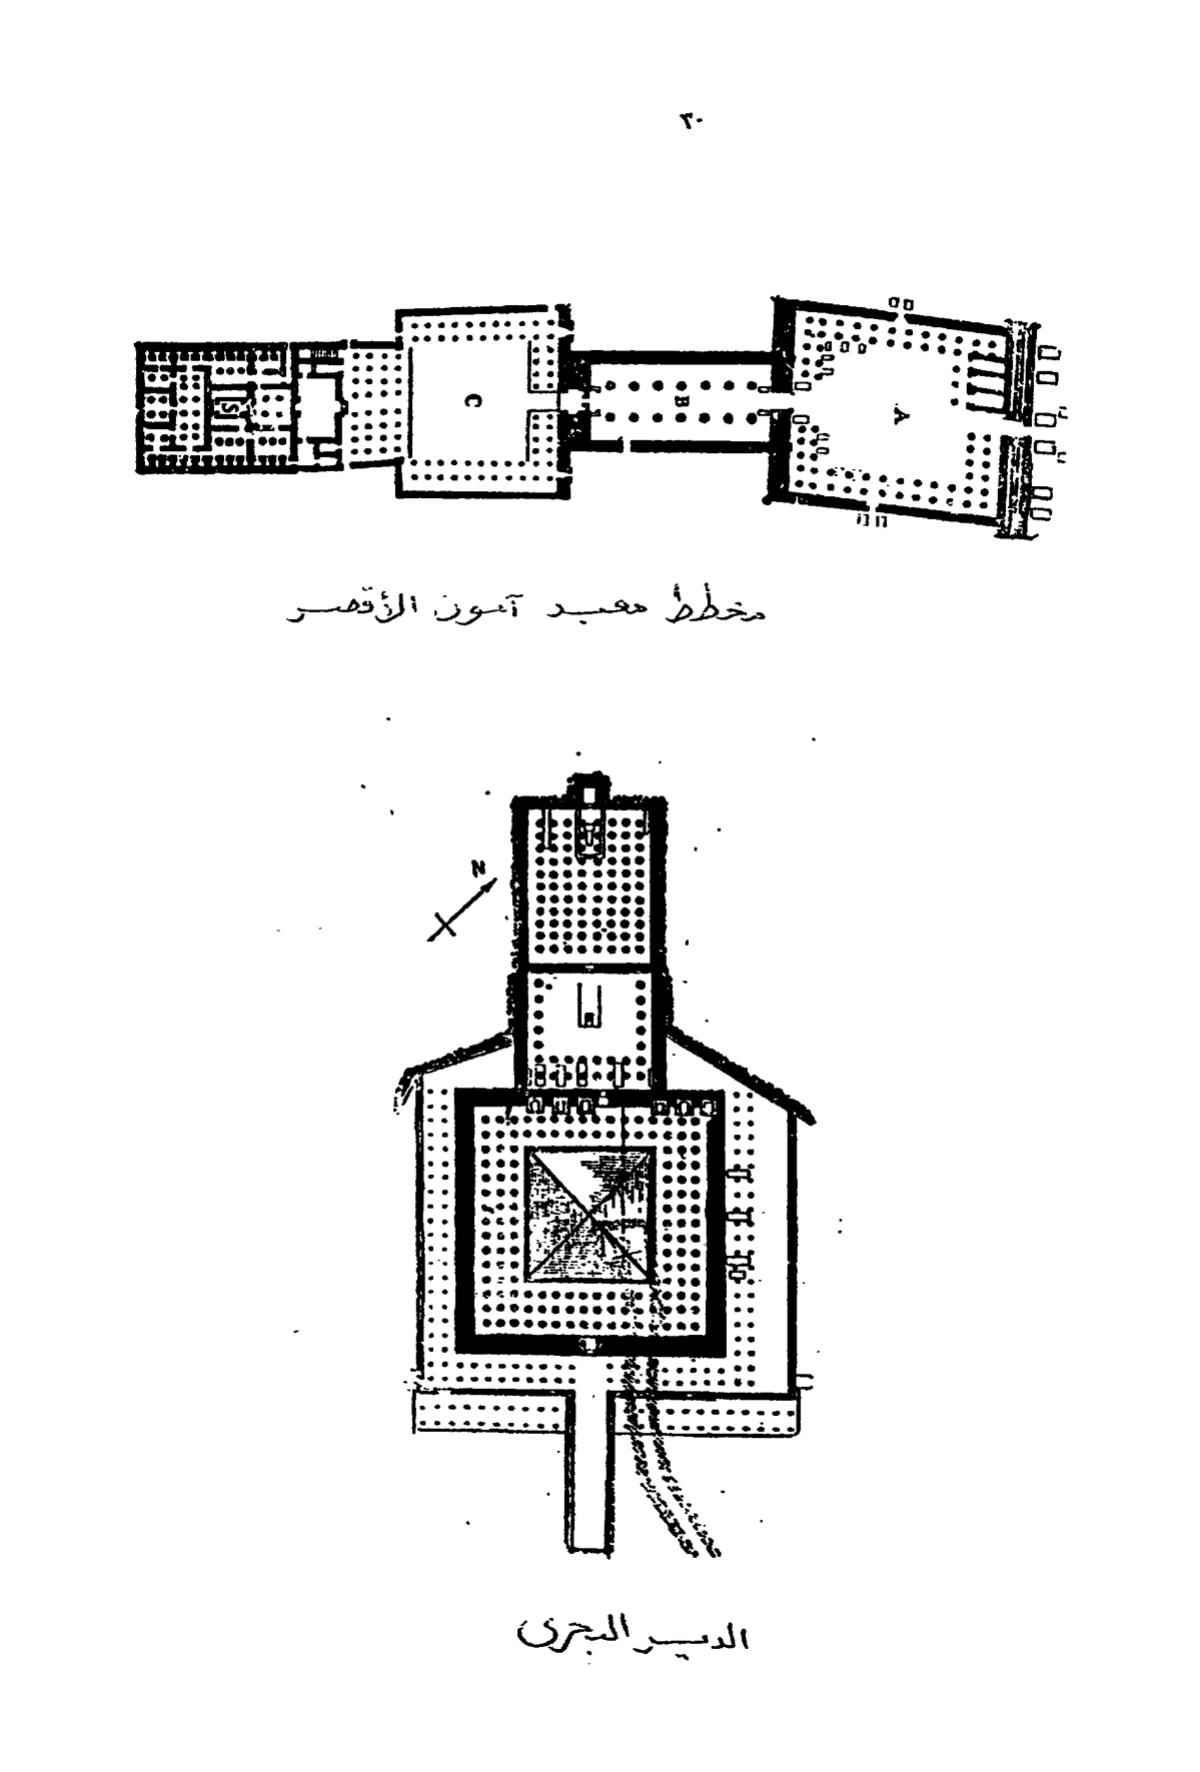 ٣٠
S
C
B
A
مخطط معبد آمون الأقصر
N
الدير البحري